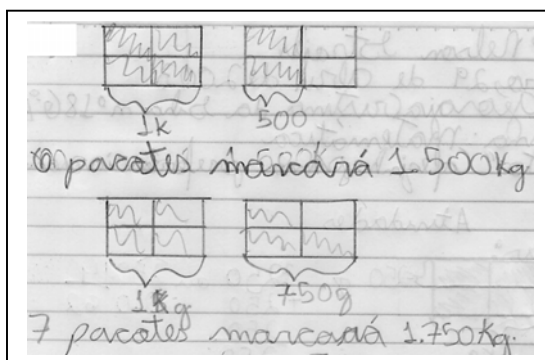 1k 500
6 pacotes marcará 1.500Kg
1Kg. 750g
7 pacotes marcará 1.750Kg.